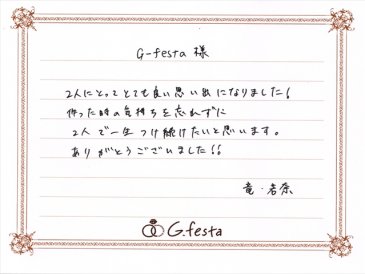 G-festa 様
2人にとってとても良い思い出になりました!
作った時の気持ちを忘れずに
2人で一生つけ続けたいと思います。
ありがとうございました!!
竜・若奈
G.festa